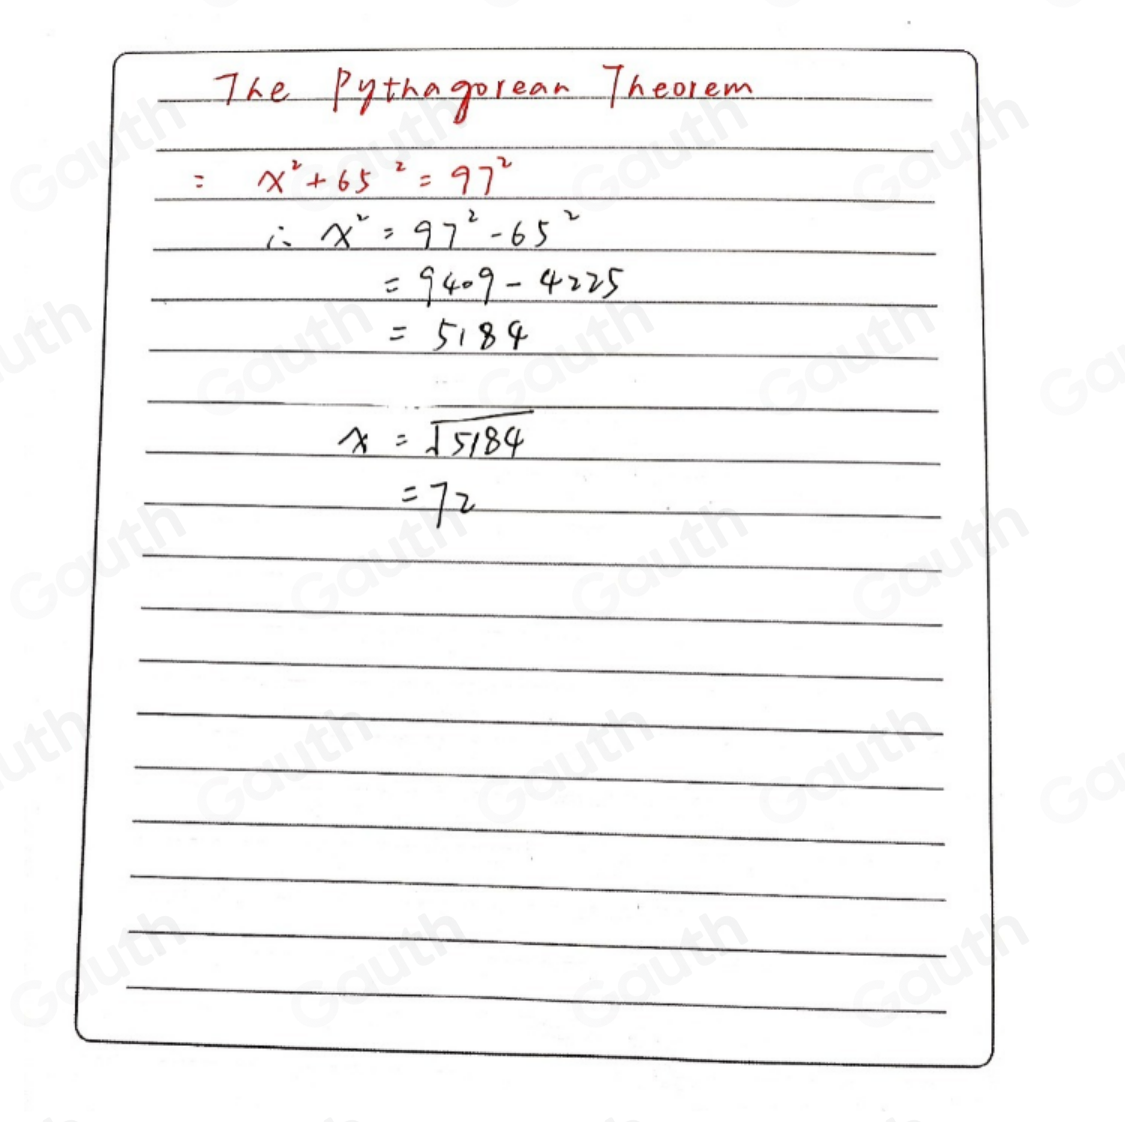 The Pythagorean Theorem
= x²+65² = 97²
∴ x² = 97²-65²
= 9409-4225
= 5184
x = √5184
=72